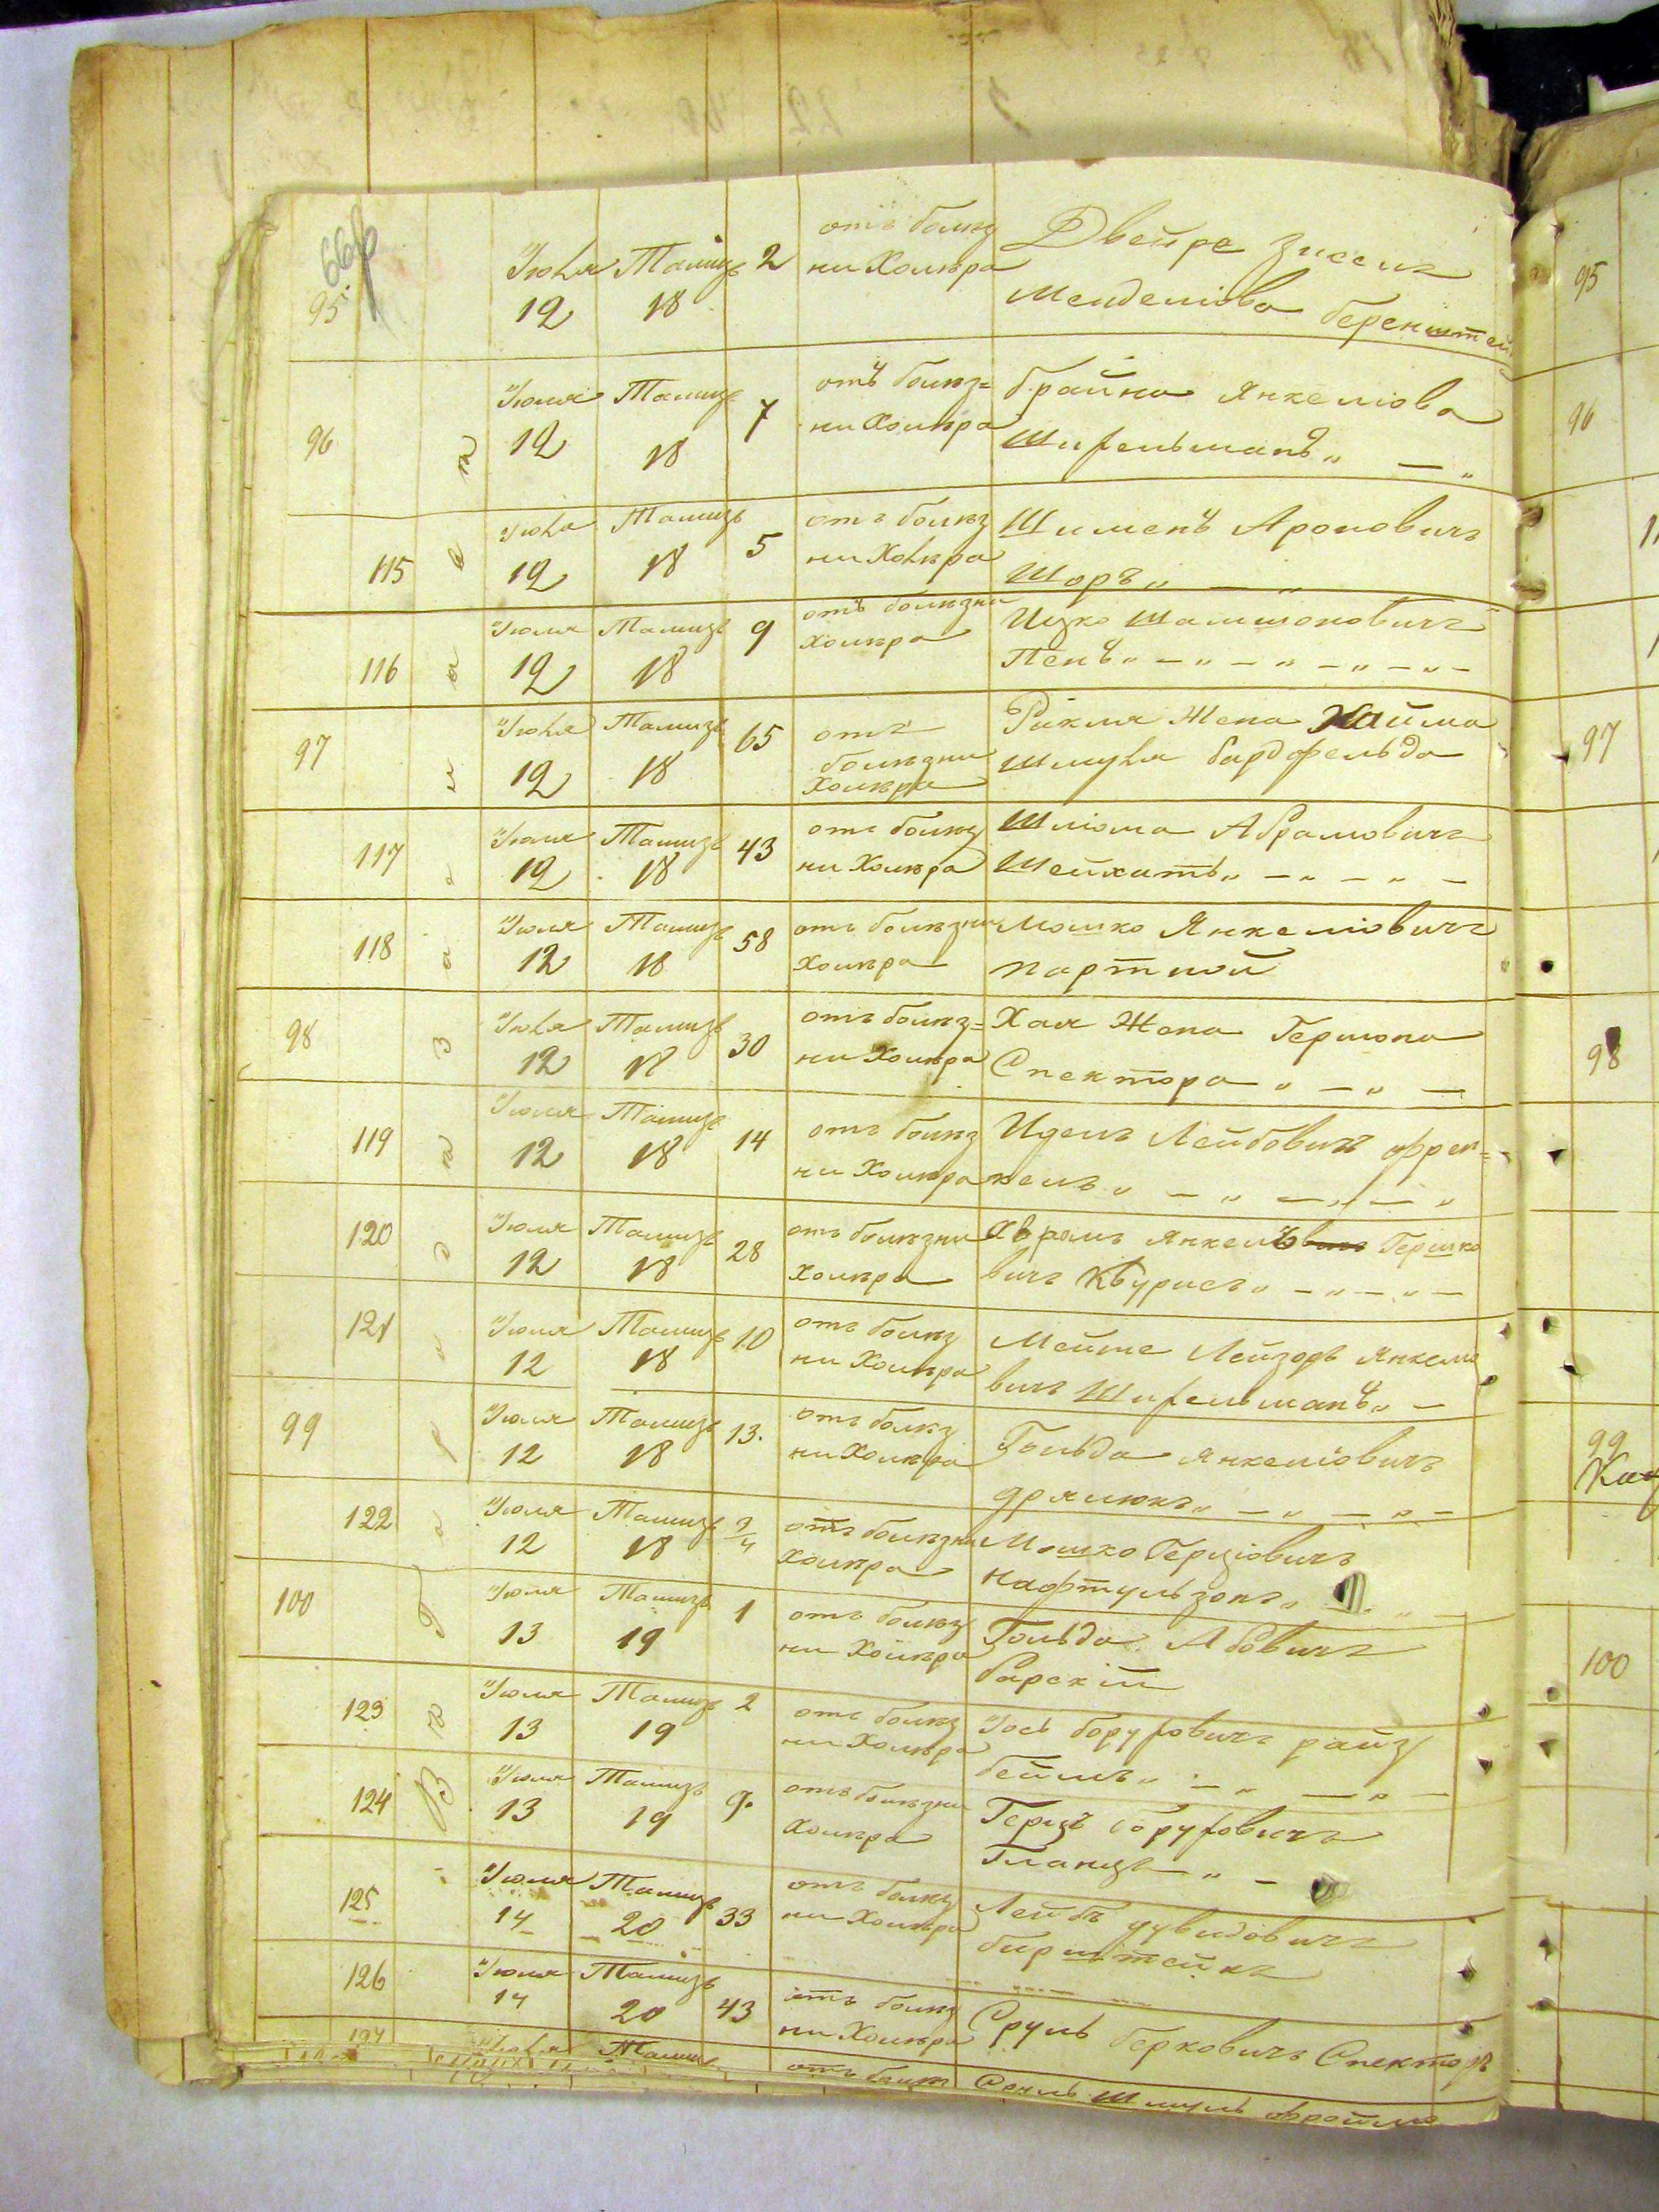 66р
95 Июля 12 Тамизъ 18 2 отъ болѣзни Холѣра Двейра Зисель
Менделіова Беренштей
96 Июля 12 Тамизъ 18 7 отъ болѣз=ни Холѣра Брайна Янкеліова
Шифельманъ
115 Июля 12 Тамизъ 18 5 отъ болѣзни Холѣра Шименъ Ароновичъ
Шоръ
116 Июля 12 Тамизъ 18 9 отъ болѣзни холѣра Ицко Шамшоновичъ
Пенъ
97 Июля 12 Тамизъ 18 65 отъ болѣзни Холѣра Рикля Жена Хайма
Шмуля Бардфельда
117 Июля 12 Тамизъ 18 43 отъ болѣзни Холѣра Шліома Абрамовичъ
Шейхатъ
118 Июля 12 Тамизъ 18 58 отъ болѣзни Холѣра Мошко Янкеліовичъ
партной
98 Июля 12 Тамизъ 18 30 отъ болѣз=ни Холѣра Хая Жена Гершона
Спектора
119 Июля 12 Тамизъ 18 14 отъ болѣзни Холѣра Идель Лейбовичъ Френ=
кель
120 Июля 12 Тамизъ 18 28 отъ болѣзни Холѣра Аврамъ Гершко
вичъ
121 Июля 12 Тамизъ 18 10 отъ болѣзни Холѣра Лейзоръ Янкеліо
вичъ Шифельманъ
99 Июля 12 Тамизъ 18 13. отъ болѣзни Холѣра Гольда Янкеліовичъ
122 Июля 12 Тамизъ 18 3/4 отъ болѣзни Холѣра Мошко Герціовичъ
Нафтульзонъ
100 Июля 13 Тамизъ 19 1 отъ болѣзни Холѣра Гольда Абовичъ
Барскій
123 Июля 13 Тамизъ 19 2 отъ болѣзни Холѣра Іось Боруховичъ райз
беймъ
124 Июля 13 Тамизъ 19 9. отъ болѣзни Холѣра Герцъ Боруховичъ
Гланцъ
125 Июля 14 Тамизъ 20 33 отъ болѣзни Холѣра Лейбъ Дувидовичъ
бирштейнъ
126 Июля 14 Тамизъ 20 43 отъ болѣзни Холѣра Сруль Берковичъ Спекторъ
127 Июля Тамизъ отъ болѣз Сруль Шмуль
95
96
97
98
99
100